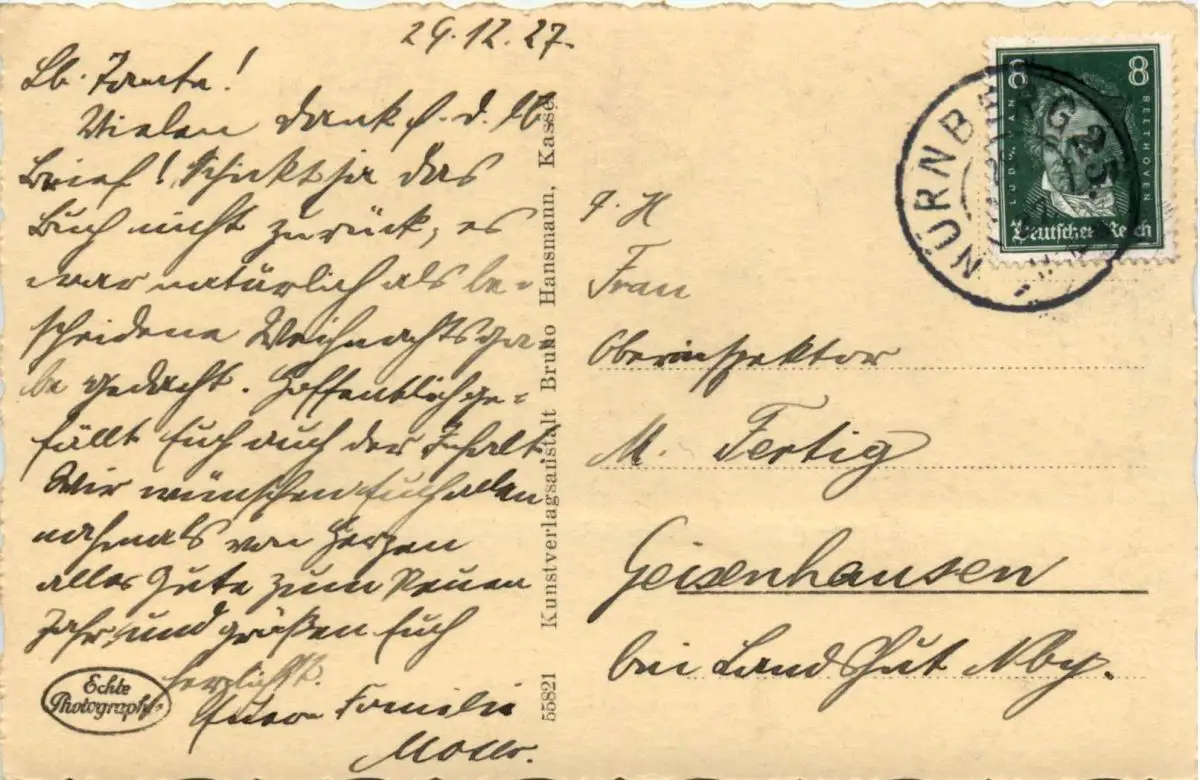 29.12.27.
Lb. Tante!
Vielen Dank f. d. lb.
Brief! Schickt ja das
Buch nicht zurück, es
war natürlich als be-
scheidene Weihnachtsga-
be gedacht. Hoffentlich ge-
fällt Euch auch der Inhalt.
Wir wünschen Euch allen
nochmals von Herzen
alles Gute zum Neuen
Jahr, und grüßen Euch
herzlichst.
Eure Familie
Echte
Photographie
55821 Kunstverlagsanstalt Bruno Hansmann, Kassel
NÜRNBERG 2
8 8
LUDW. VAN BEETHOVEN
Deutsches Reich
Frau
Oberinspektor
M. Fertig
Geisenhausen
bei Landshut Nby.